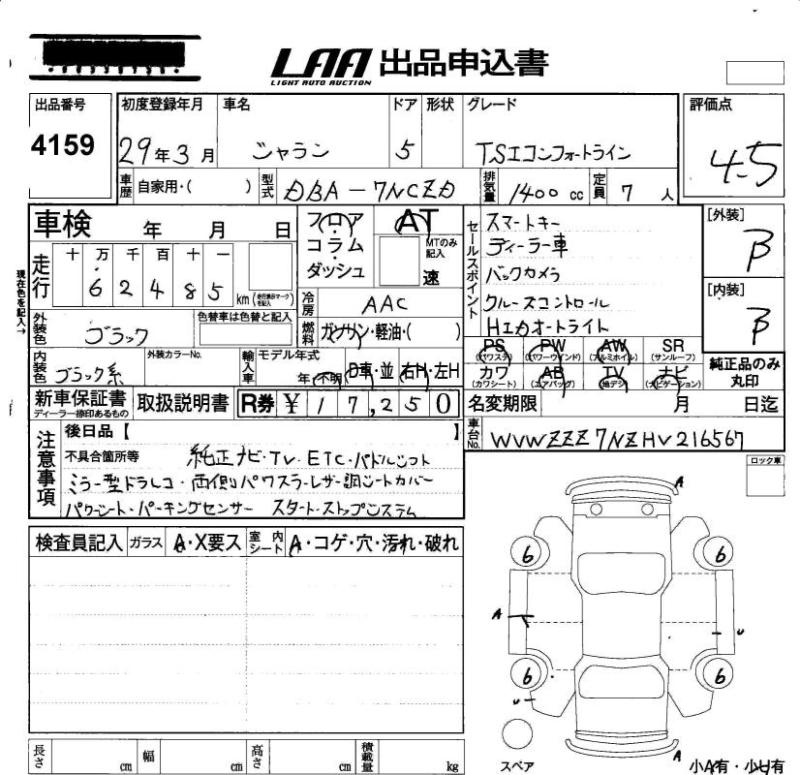 LAA 出品申込書
LIGHT AUTO AUCTION
出品番号 初度登録年月 車名 ドア 形状 グレード 評価点
4159 29年3月 シャラン 5 TSIコンフォートライン 4.5
車歴 自家用・( ) 型式 DBA-7NCZD 排気量 1400cc 定員 7人
車検 年 月 日 フロア AT セールスポイント スマートキー [外装]
走行 十 万 千 百 十 一 コラム MTのみ記入 ディーラー車 B
現在色を記入→ 6 2 4 8 5 km ダッシュ 速 バックカメラ [内装]
冷房 AAC クルーズコントロール B
外装色 ブラック 色替車は色替と記入 燃料 ガソリン・軽油・( ) HIDオートライト
内装色 ブラック系 外装カラーNo. 輸入車 モデル年式 年・不明 D車・並 右H・左H
PS (パワステ) PW (パワーウインド) AW (アルミホイル) SR (サンルーフ) 純正品のみ丸印
カワ (カワシート) AB (エアバッグ) TV (地デジ) ナビ (ナビゲーション)
新車保証書 ディーラー捺印あるもの 取扱説明書 R券 ¥ 17,250 名変期限 月 日迄
注意事項 後日品【 】 車台No. WVWZZZ7NZHV216567
不具合箇所等 純正ナビ・TV・ETC・パドルシフト ロック車
ミラー型ドラレコ・両側パワスラ・レザー調シートカバー
パワーシート・パーキングセンサー スタート・ストップシステム
検査員記入 ガラス A・X要ス 室内シート A・コゲ・穴・汚れ・破れ
A
6 6
A U
6 6
U
A
スペア 小A有・少U有
長さ cm 幅 cm 高さ cm 積載量 kg